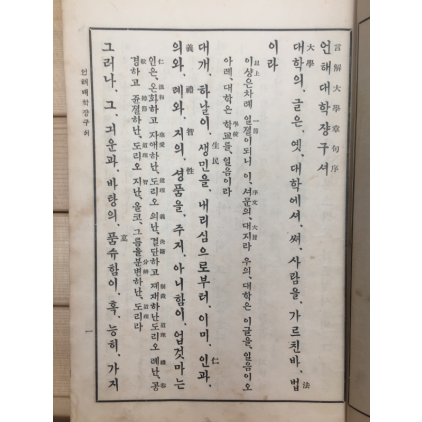 言解大學章句序
언해대학쟝구셔
大學 法
대학의, 글은, 옛, 대학에셔, 써, 사람을, 가르친바, 법
이라
以上 一節 序文 大旨
이샹은차례 일졀이되니 이, 셔문의, 대지라 우의, 대학은 이글을, 일음이오
學校
아래, 대학은 학교를, 일음이라
生民 仁
대개, 하날이, 생민을, 내리심으로부터, 이미, 인과,
義 禮 智 性
의와, 례와, 지의, 셩품을, 주지, 아니함이, 업것마는
인은, 온화하고 자애하난, 도리오 의난, 결단하고 졔재하난도리오 례난, 공
경하고 쥰졀하난, 도리오 지난, 올코, 그름을분변하난, 도리라
稟
그러나, 그, 긔운과, 바탕의, 품슈함이, 혹, 능히, 가지
언해대학쟝구셔
一